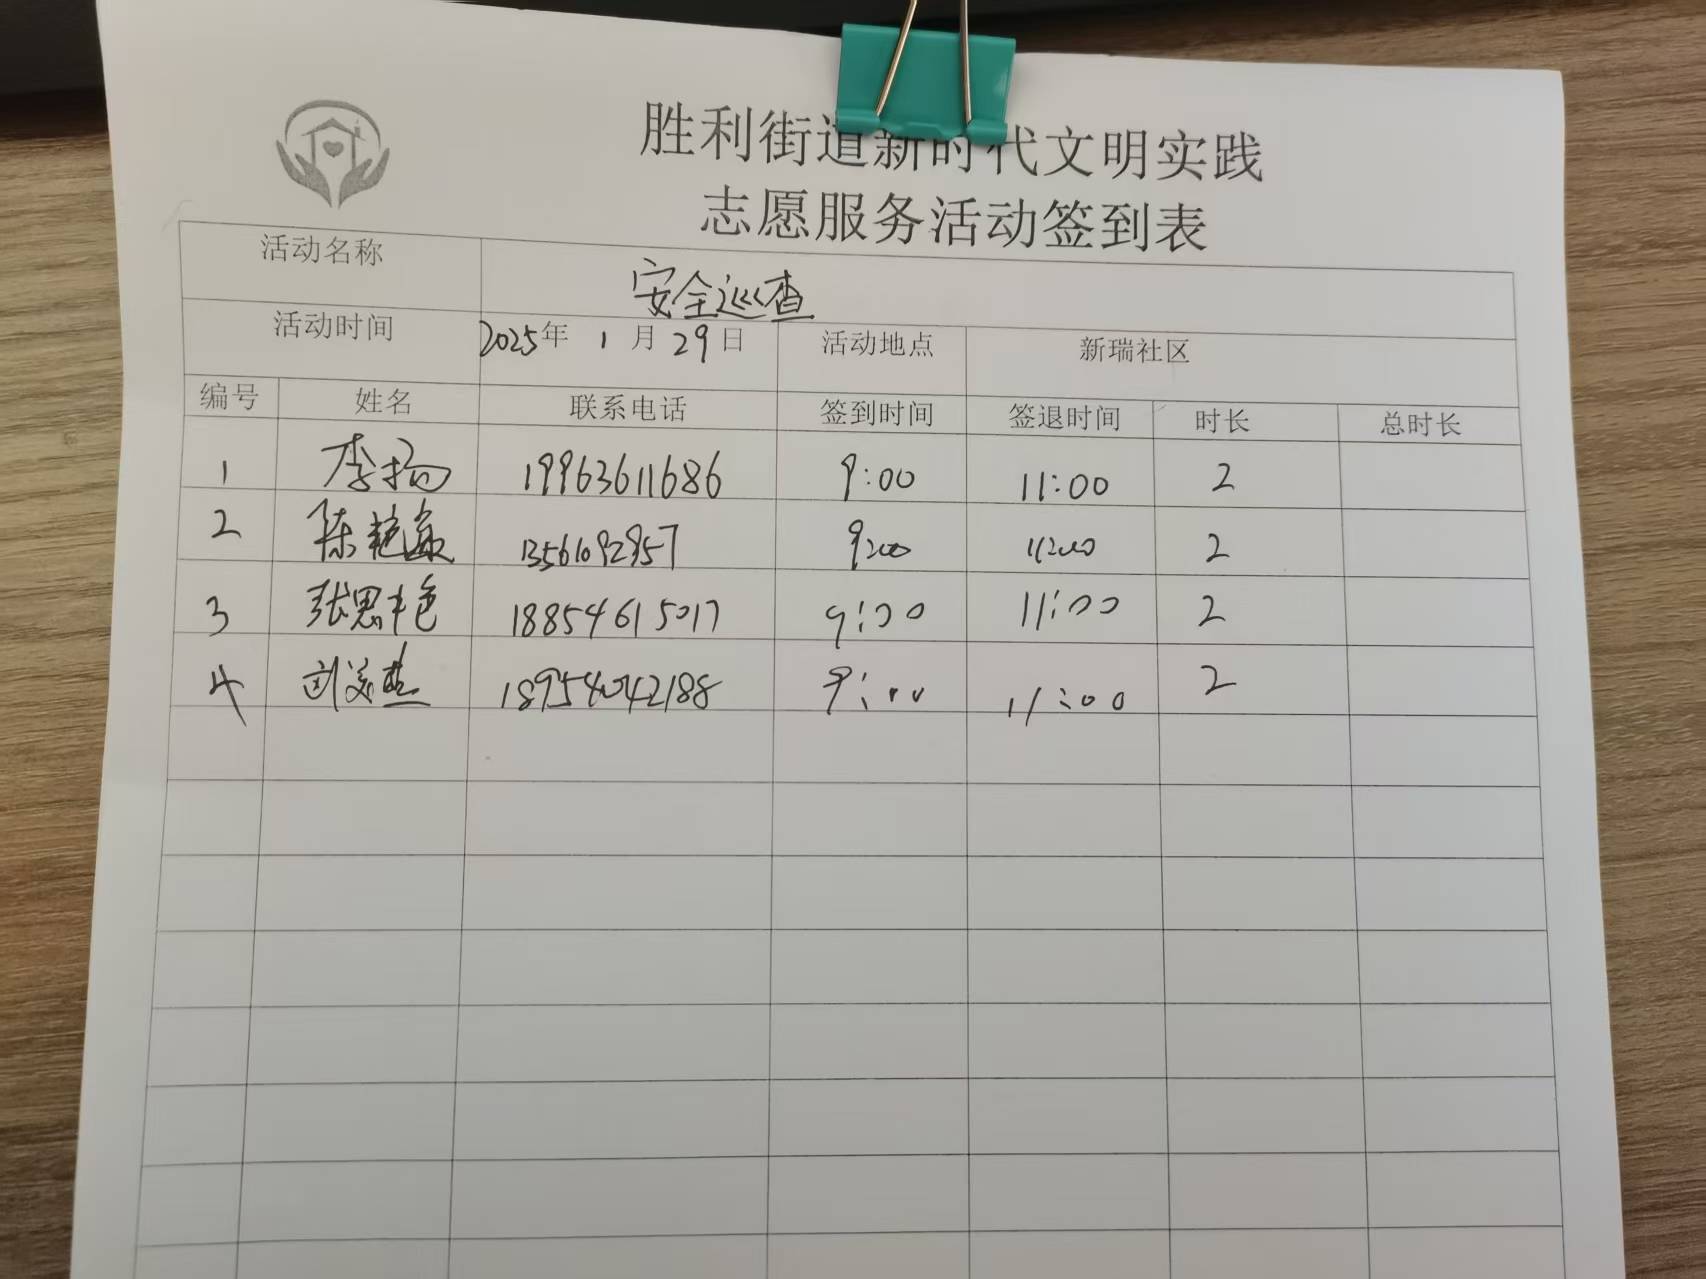 胜利街道新时代文明实践
志愿服务活动签到表
活动名称 安全巡查
活动时间 2025年 1 月 29 日 活动地点 新瑞社区
编号 姓名 联系电话 签到时间 签退时间 时长 总时长
1 李扬 19963611686 9:00 11:00 2
2 陈艳 13561092957 9:00 11:00 2
3 张思 18854615017 9:00 11:00 2
4 刘美燕 18954042188 9:00 11:00 2